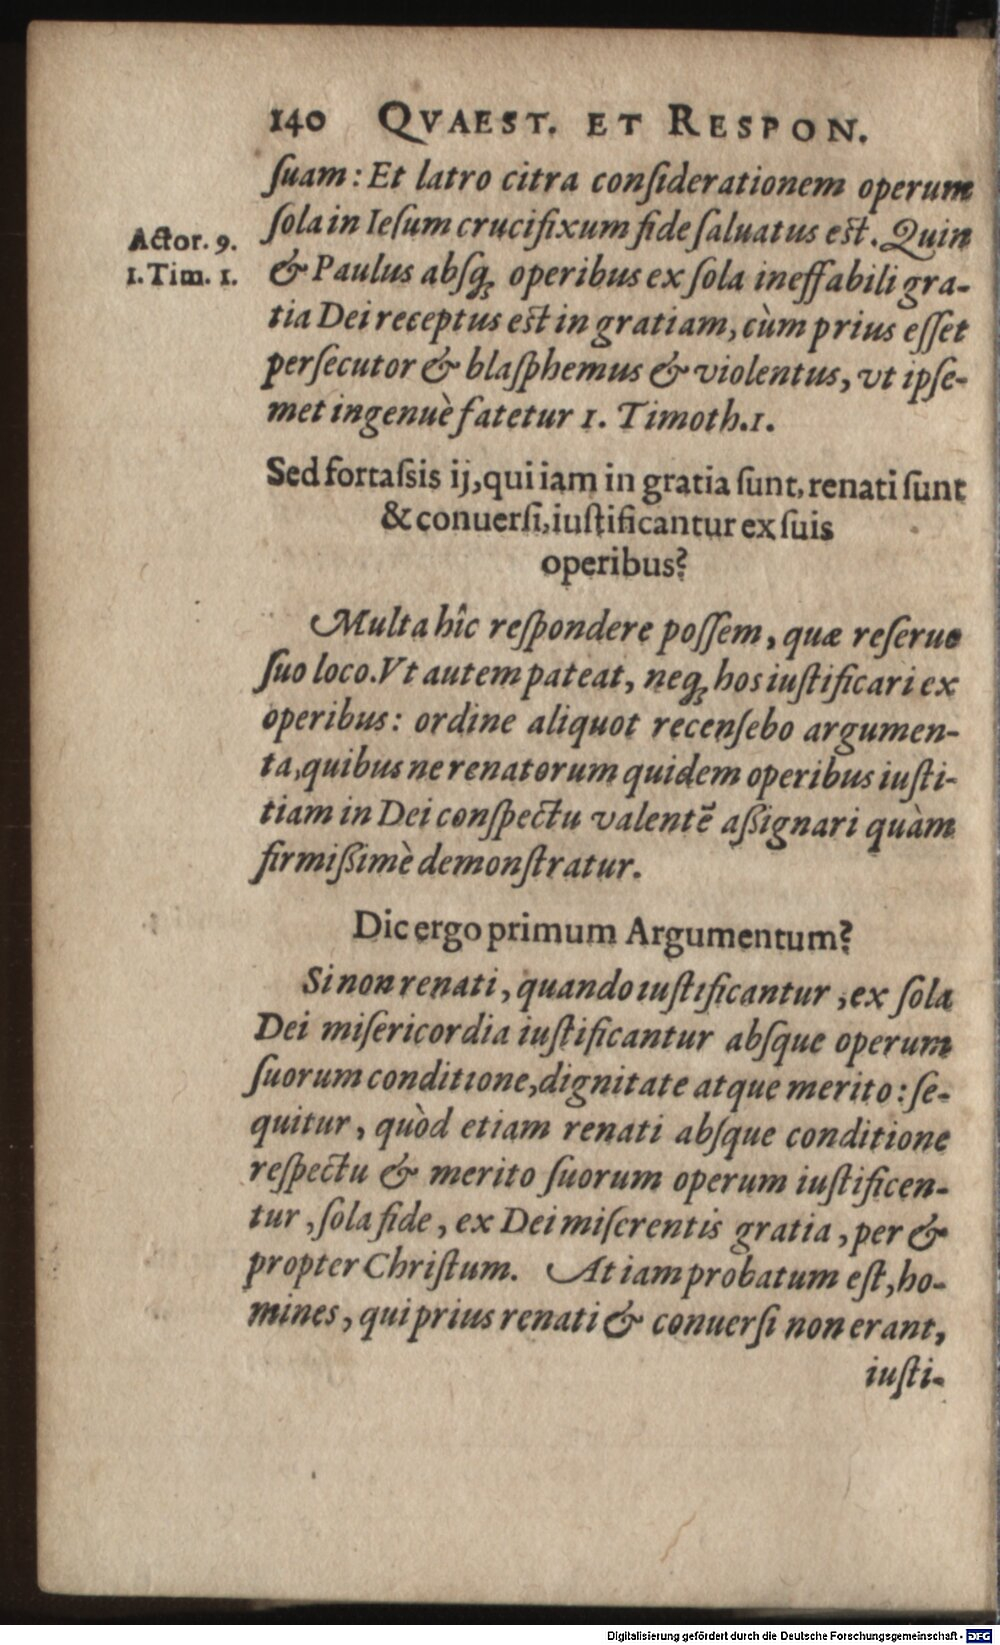 140 QVAEST. ET RESPON.
ſuam: Et latro citra conſiderationem operum
ſola in Ieſum crucifixum fide ſaluatus est. Quin
Actor. 9.
1. Tim. 1.
& Paulus abſq; operibus ex ſola ineffabili gra-
tia Dei receptus est in gratiam, cùm prius eſſet
perſecutor & blaſphemus & violentus, vt ipſe-
met ingenuè fatetur 1. Timoth.1.
Sed fortaſsis ij, qui iam in gratia ſunt, renati ſunt
& conuerſi, iuſtificantur ex ſuis
operibus?
Multa hîc reſpondere poſſem, quæ reſeruo
ſuo loco. Vt autem pateat, neq; hos iuſtificari ex
operibus: ordine aliquot recenſebo argumen-
ta, quibus ne renatorum quidem operibus iuſti-
tiam in Dei conſpectu valentẽ aßignari quàm
firmißimè demonſtratur.
Dic ergo primum Argumentum?
Si non renati, quando iuſtificantur, ex ſola
Dei miſericordia iuſtificantur abſque operum
ſuorum conditione, dignitate atque merito: ſe-
quitur, quòd etiam renati abſque conditione
reſpectu & merito ſuorum operum iuſtificen-
tur, ſola fide, ex Dei miſerentis gratia, per &
propter Chriſtum. At iam probatum eſt, ho-
mines, qui prius renati & conuerſi non erant,
iuſti-
Digitalisierung gefördert durch die Deutsche Forschungsgemeinschaft - DFG